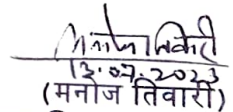 मनोज तिवारी
13.07.2023
(मनोज तिवारी)